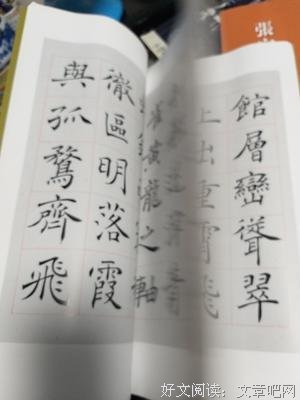 張
館層巒聳翠
上出重霄飛
龍之軸
徹區明落霞
與孤鶩齊飛
好文阅读：文章吧网